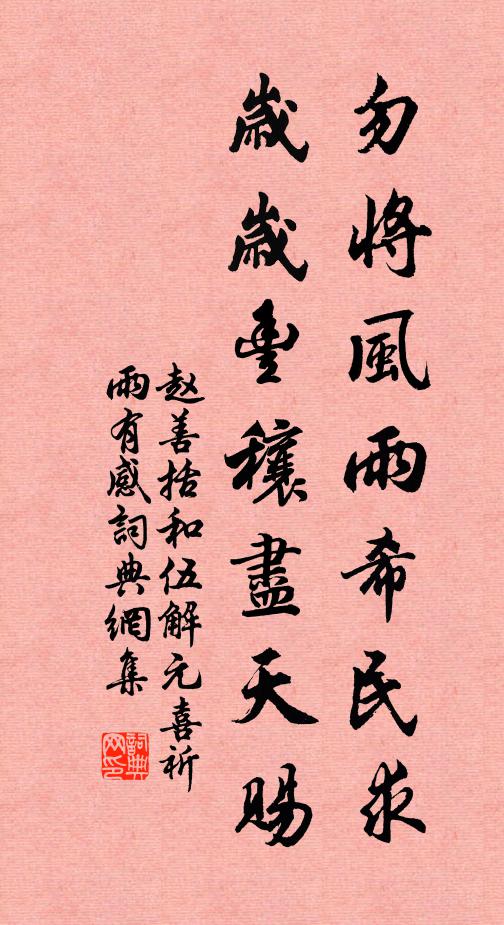 勿將風雨希民求
歲歲豐穰盡天賜
赵善括和伍解元喜祈
雨有感詞典網集
詞典
网印